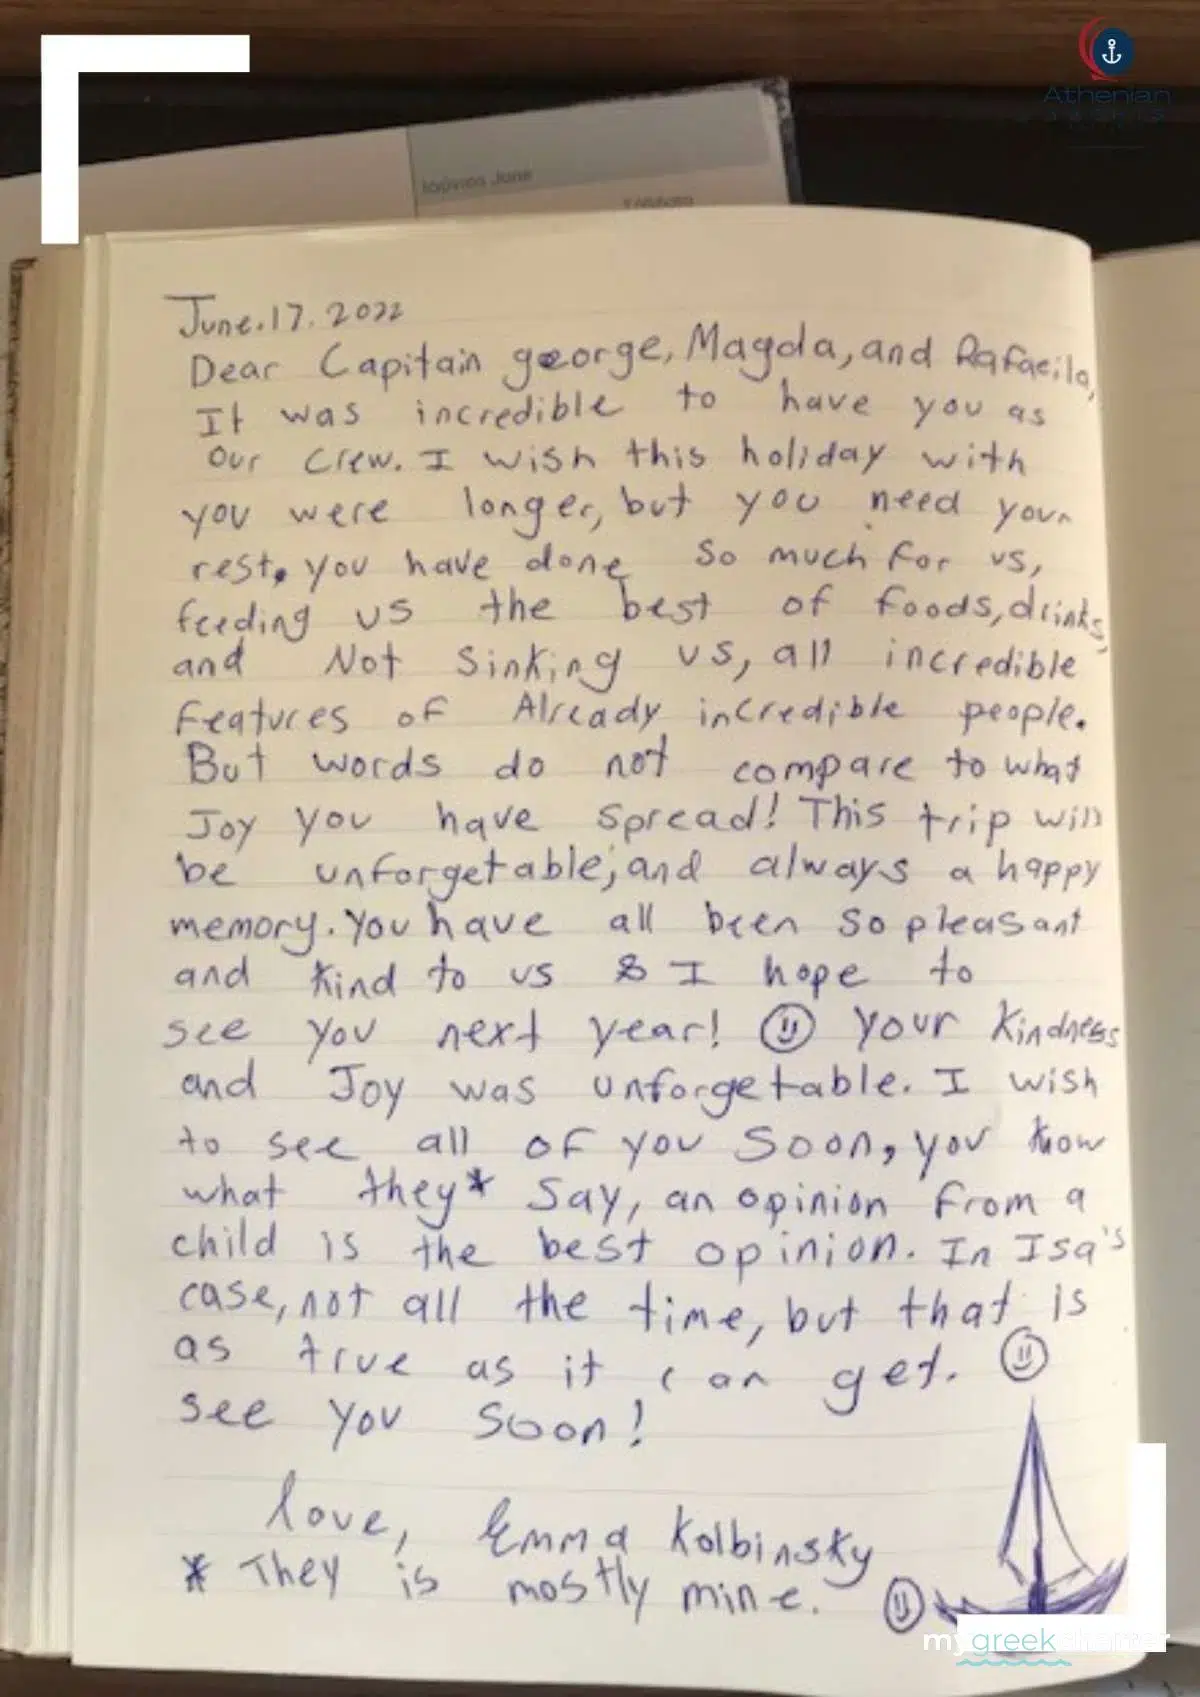 Athenian
Ιούνιος June
June.17.2022
Dear Capitain george, Magda, and Rafaeila,
It was incredible to have you as
our crew. I wish this holiday with
you were longer, but you need your
rest, you have done so much for us,
feeding us the best of foods, drinks,
and Not Sinking us, all incredible
features of Already incredible people.
But words do not compare to what
Joy you have spread! This trip will
be unforgetable, and always a happy
memory. You have all been so pleasant
and kind to us & I hope to
see you next year! your kindness
and Joy was unforgetable. I wish
to see all of you soon, you know
what they* say, an opinion from a
child is the best opinion. In Isa's
case, not all the time, but that is
as true as it can get.
see you soon!
love, Emma Kolbinsky
* They is mostly mine.
mygreekcharter